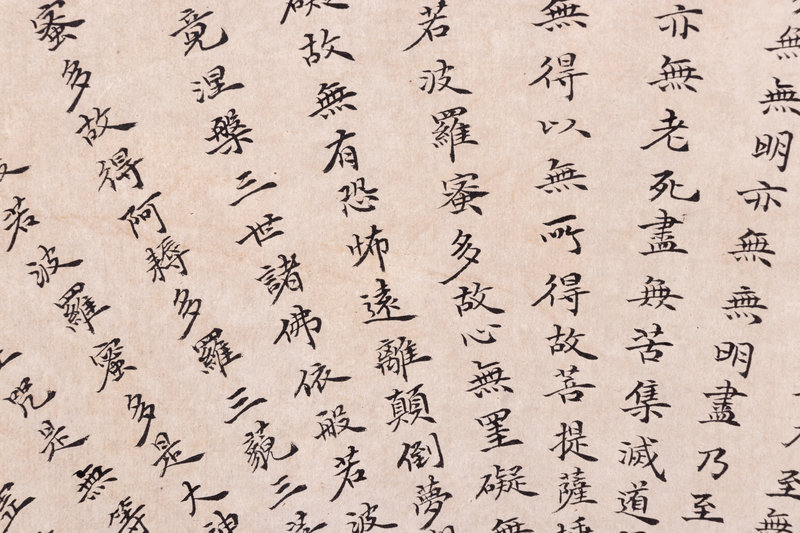 至無
無無明亦無無明盡乃至
亦無老死盡無苦集滅道
無得以無所得故菩提薩埵
若波羅蜜多故心無罣礙無
礙故無有恐怖遠離顛倒夢
竟涅槃三世諸佛依般若波
蜜多故得阿耨多羅三藐三
若波羅蜜多是大神
咒是無等